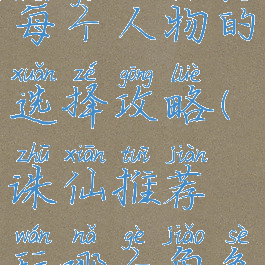 每个人物的
xuǎn zé gōng lüè
选择攻略(
zhū xiān tuī jiàn
诛仙推荐
wán nǎ gè jiǎo sè
玩哪个角色